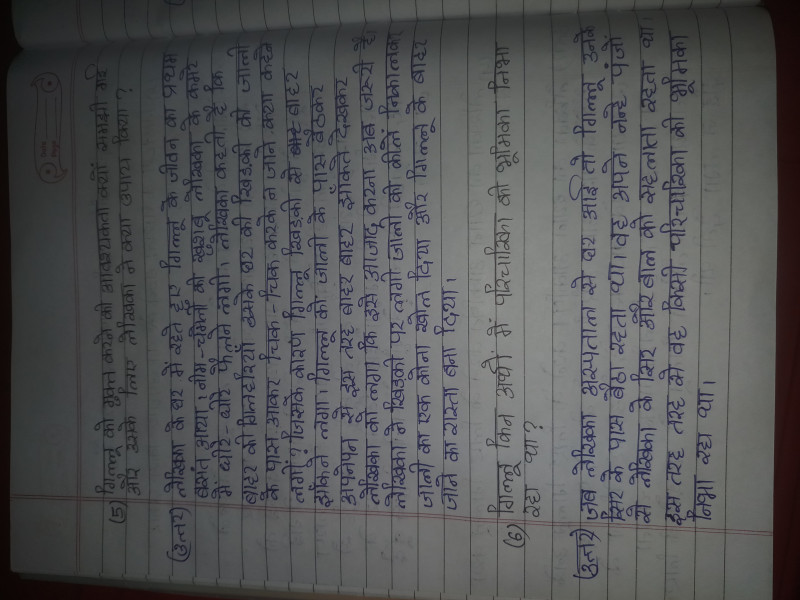 (5) गिल्लू को मुक्त करने की आवश्यकता क्यों समझी गई
और उसके लिए लेखिका ने क्या उपाय किया ?
(उत्तर) लेखिका के घर में रहते हुए गिल्लू के जीवन का प्रथम
बसंत आया। नीम-चमेली की खुशबू लेखिका के कमरे
में धीरे-धीरे फैलने लगी। लेखिका कहती है कि
बाहर की गिलहरियाँ उसके घर की खिड़की की जाली
के पास आकर चिक-चिक करके न जाने क्या कहने
लगीं? जिसके कारण गिल्लू खिड़की से बाहर
झाँकने लगा। गिल्लू को जाली के पास बैठकर
अपनेपन से इस तरह बाहर झाँकते देखकर
लेखिका को लगा कि इसे आजाद करना अब जरूरी है।
लेखिका ने खिड़की पर लगी जाली की कीलें निकालकर
जाली का एक कोना खोल दिया और गिल्लू के बाहर
जाने का रास्ता बना दिया।
(6) गिल्लू किन अर्थों में परिचारिका की भूमिका निभा
रहा था?
(उत्तर) जब लेखिका अस्पताल से घर आई तो गिल्लू उनके
सिर के पास बैठा रहता था। वह अपने नन्हे पंजों
से लेखिका के सिर और बाल को सहलाता रहता था।
इस तरह से वह किसी परिचारिका की भूमिका
निभा रहा था।